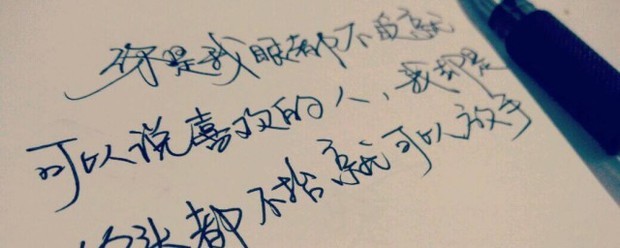 你是我眼都不眨就
可以说喜欢的人，我却是
你头都不抬就可以放手